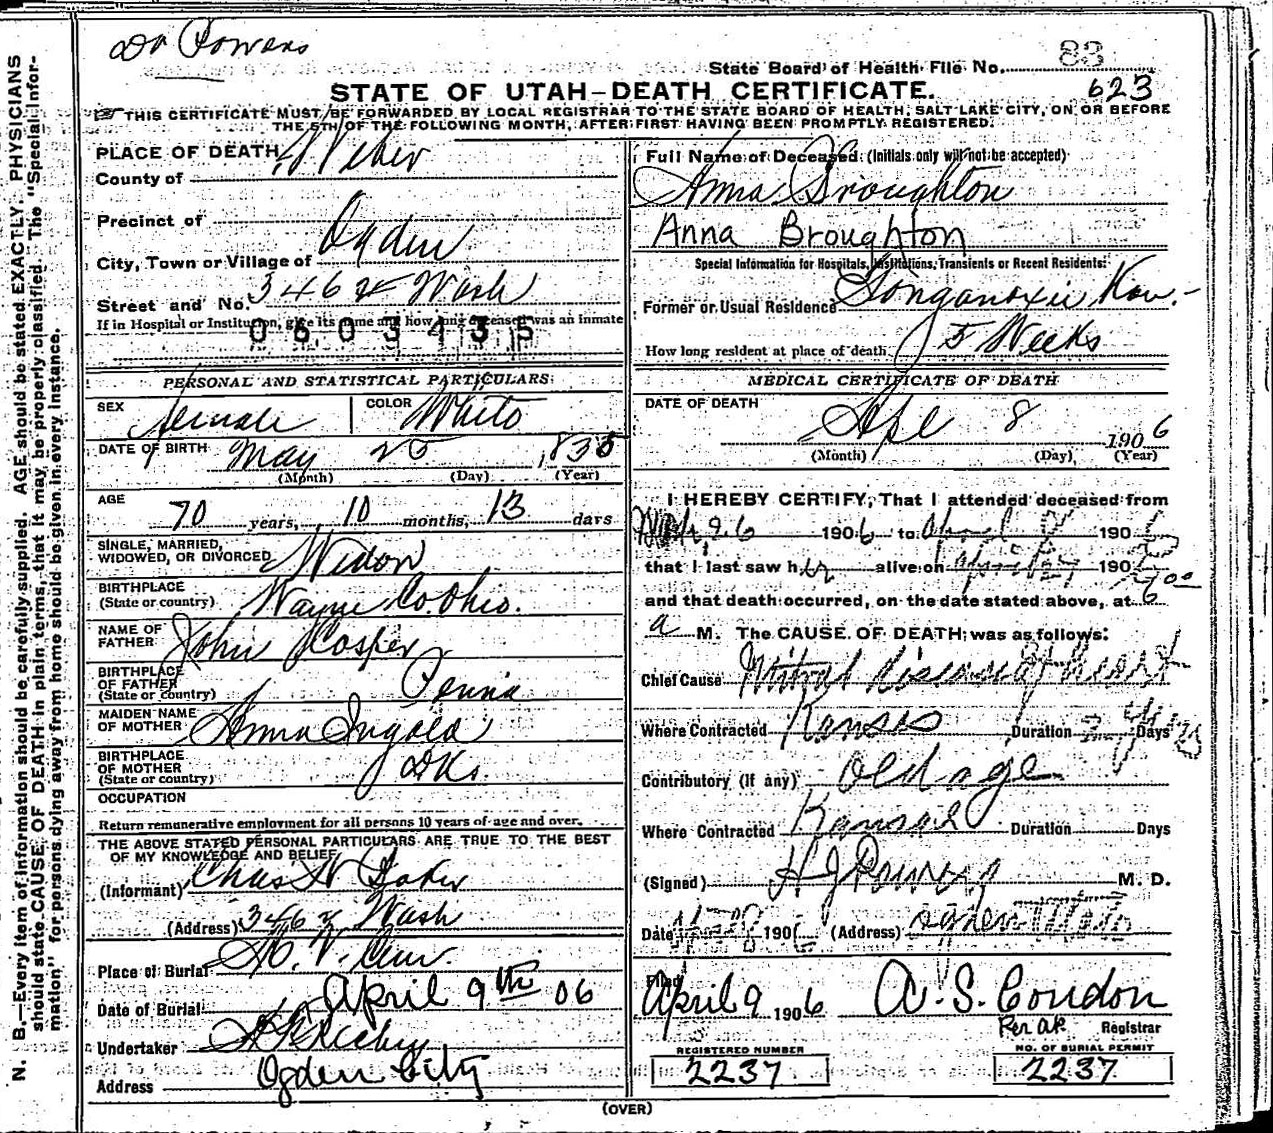 Dr Powers
State Board of Health File No. 83
STATE OF UTAH-DEATH CERTIFICATE. 623
THIS CERTIFICATE MUST BE FORWARDED BY LOCAL REGISTRAR TO THE STATE BOARD OF HEALTH, SALT LAKE CITY, ON OR BEFORE
THE 5TH OF THE FOLLOWING MONTH, AFTER FIRST HAVING BEEN PROMPTLY REGISTERED.
PLACE OF DEATH
County of Weber
Precinct of
City, Town or Village of Ogden
Street and No. 3462 Wash
If in Hospital or Institution, give its name and how long deceased was an inmate
0603435
PERSONAL AND STATISTICAL PARTICULARS
SEX female COLOR White
DATE OF BIRTH May 25 1835
(Month) (Day) (Year)
AGE 70 years, 10 months, 13 days
SINGLE, MARRIED,
WIDOWED, OR DIVORCED Widow
BIRTHPLACE
(State or country) Wayne Co. Ohio.
NAME OF
FATHER John Casper
BIRTHPLACE
OF FATHER
(State or country) Penna
MAIDEN NAME
OF MOTHER Anna Ingold
BIRTHPLACE
OF MOTHER
(State or country) DK.
OCCUPATION
Return remunerative employment for all persons 10 years of age and over.
THE ABOVE STATED PERSONAL PARTICULARS ARE TRUE TO THE BEST
OF MY KNOWLEDGE AND BELIEF
(Informant) Chas
(Address) 3462 Wash
Place of Burial
Date of Burial April 9th 06
Undertaker
Address Ogden City
Full Name of Deceased (Initials only will not be accepted)
Anna Broughton
Anna Broughton
Special Information for Hospitals, Institutions, Transients or Recent Residents:
Former or Usual Residence Tonganoxie Kan.
How long resident at place of death 5 Weeks
MEDICAL CERTIFICATE OF DEATH
DATE OF DEATH
Apl 8 1906
(Month) (Day) (Year)
I HEREBY CERTIFY, That I attended deceased from
26 1906 to April 1906
that I last saw her alive on April 190
and that death occurred, on the date stated above, at 6 00
a M. The CAUSE OF DEATH was as follows:
Chief Cause Mitral disease of heart
Where Contracted Kansas Duration 2 yrs Days
Contributory (if any) Old age
Where Contracted Kansas Duration Days
(Signed) H J Powers M. D.
Date 190 (Address) Ogden Utah
Filed
April 9 1906 A. S. Condon
Per AR Registrar
REGISTERED NUMBER
2237
NO. OF BURIAL PERMIT
2237
(OVER)
N. B.—Every item of information should be carefully supplied. AGE should be stated EXACTLY. PHYSICIANS
should state CAUSE OF DEATH in plain terms, that it may be properly classified. The "Special Infor-
mation" for persons dying away from home should be given in every instance.